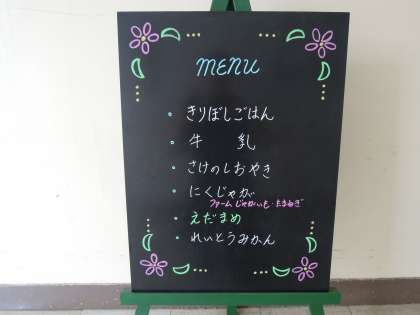 MENU
・きりぼしごはん
・牛乳
・さけのしおやき
・にくじゃが
ファーム じゃがいも・たまねぎ
・えだまめ
・れいとうみかん